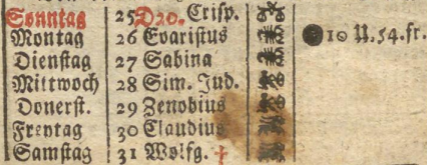 Sonntag 25 D20. Crisp.
Montag 26 Evaristus 10 U. 54. fr.
Dienstag 27 Sabina
Mittwoch 28 Sim. Jud.
Donerst. 29 Zenobius
Freytag 30 Claudius
Samstag 31 Wolfg. †